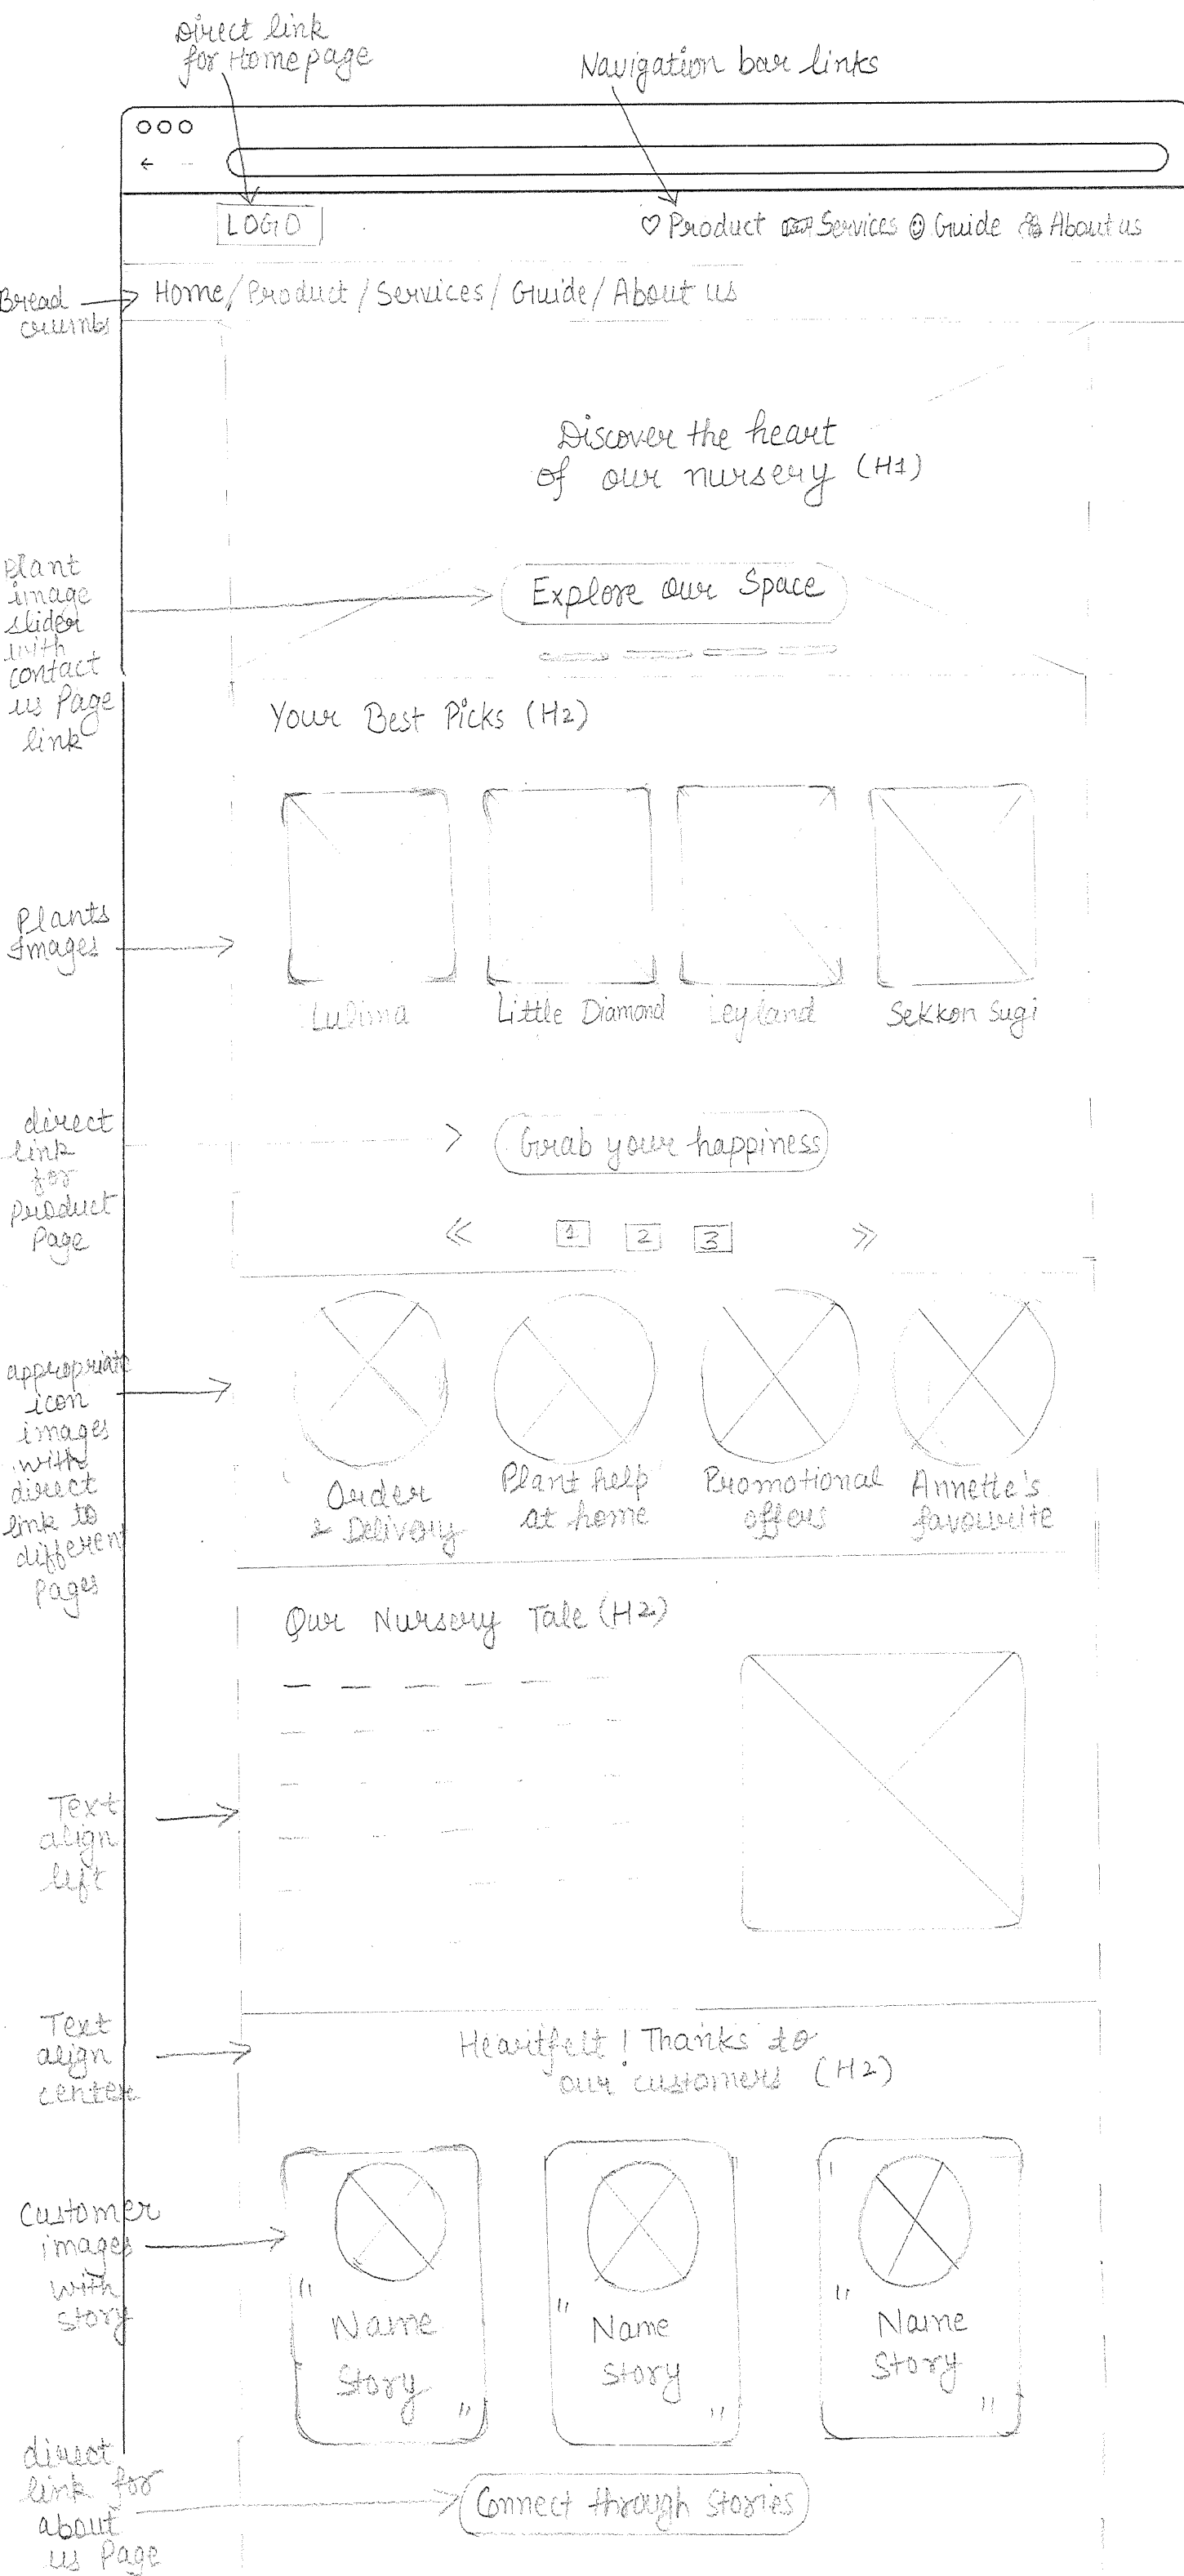 Direct link
for Homepage
Navigation bar links
LOGO
Product Services Guide About us
Bread
crumbs
Home/Product/Services/Guide/About us
Discover the heart
of our nursery (H1)
Plant
image
slider
with
contact
us Page
link
Explore our Space
Your Best Picks (H2)
Plants
Images
Lulima
Little Diamond
Leyland
Sekkon Sugi
direct
link
for
Product
Page
Grab your happiness
« 1 2 3 »
appropriate
icon
images
with
direct
link to
different
Pages
Order
& Delivery
Plant help
at home
Promotional
offers
Annette's
favourite
Our Nursery Tale (H2)
Text
align
left
Text
align
center
Heartfelt! Thanks to
our customers (H2)
Customer
images
with
story
"
Name
Story
"
"
Name
Story
"
"
Name
Story
"
direct
link for
about
us Page
Connect through Stories